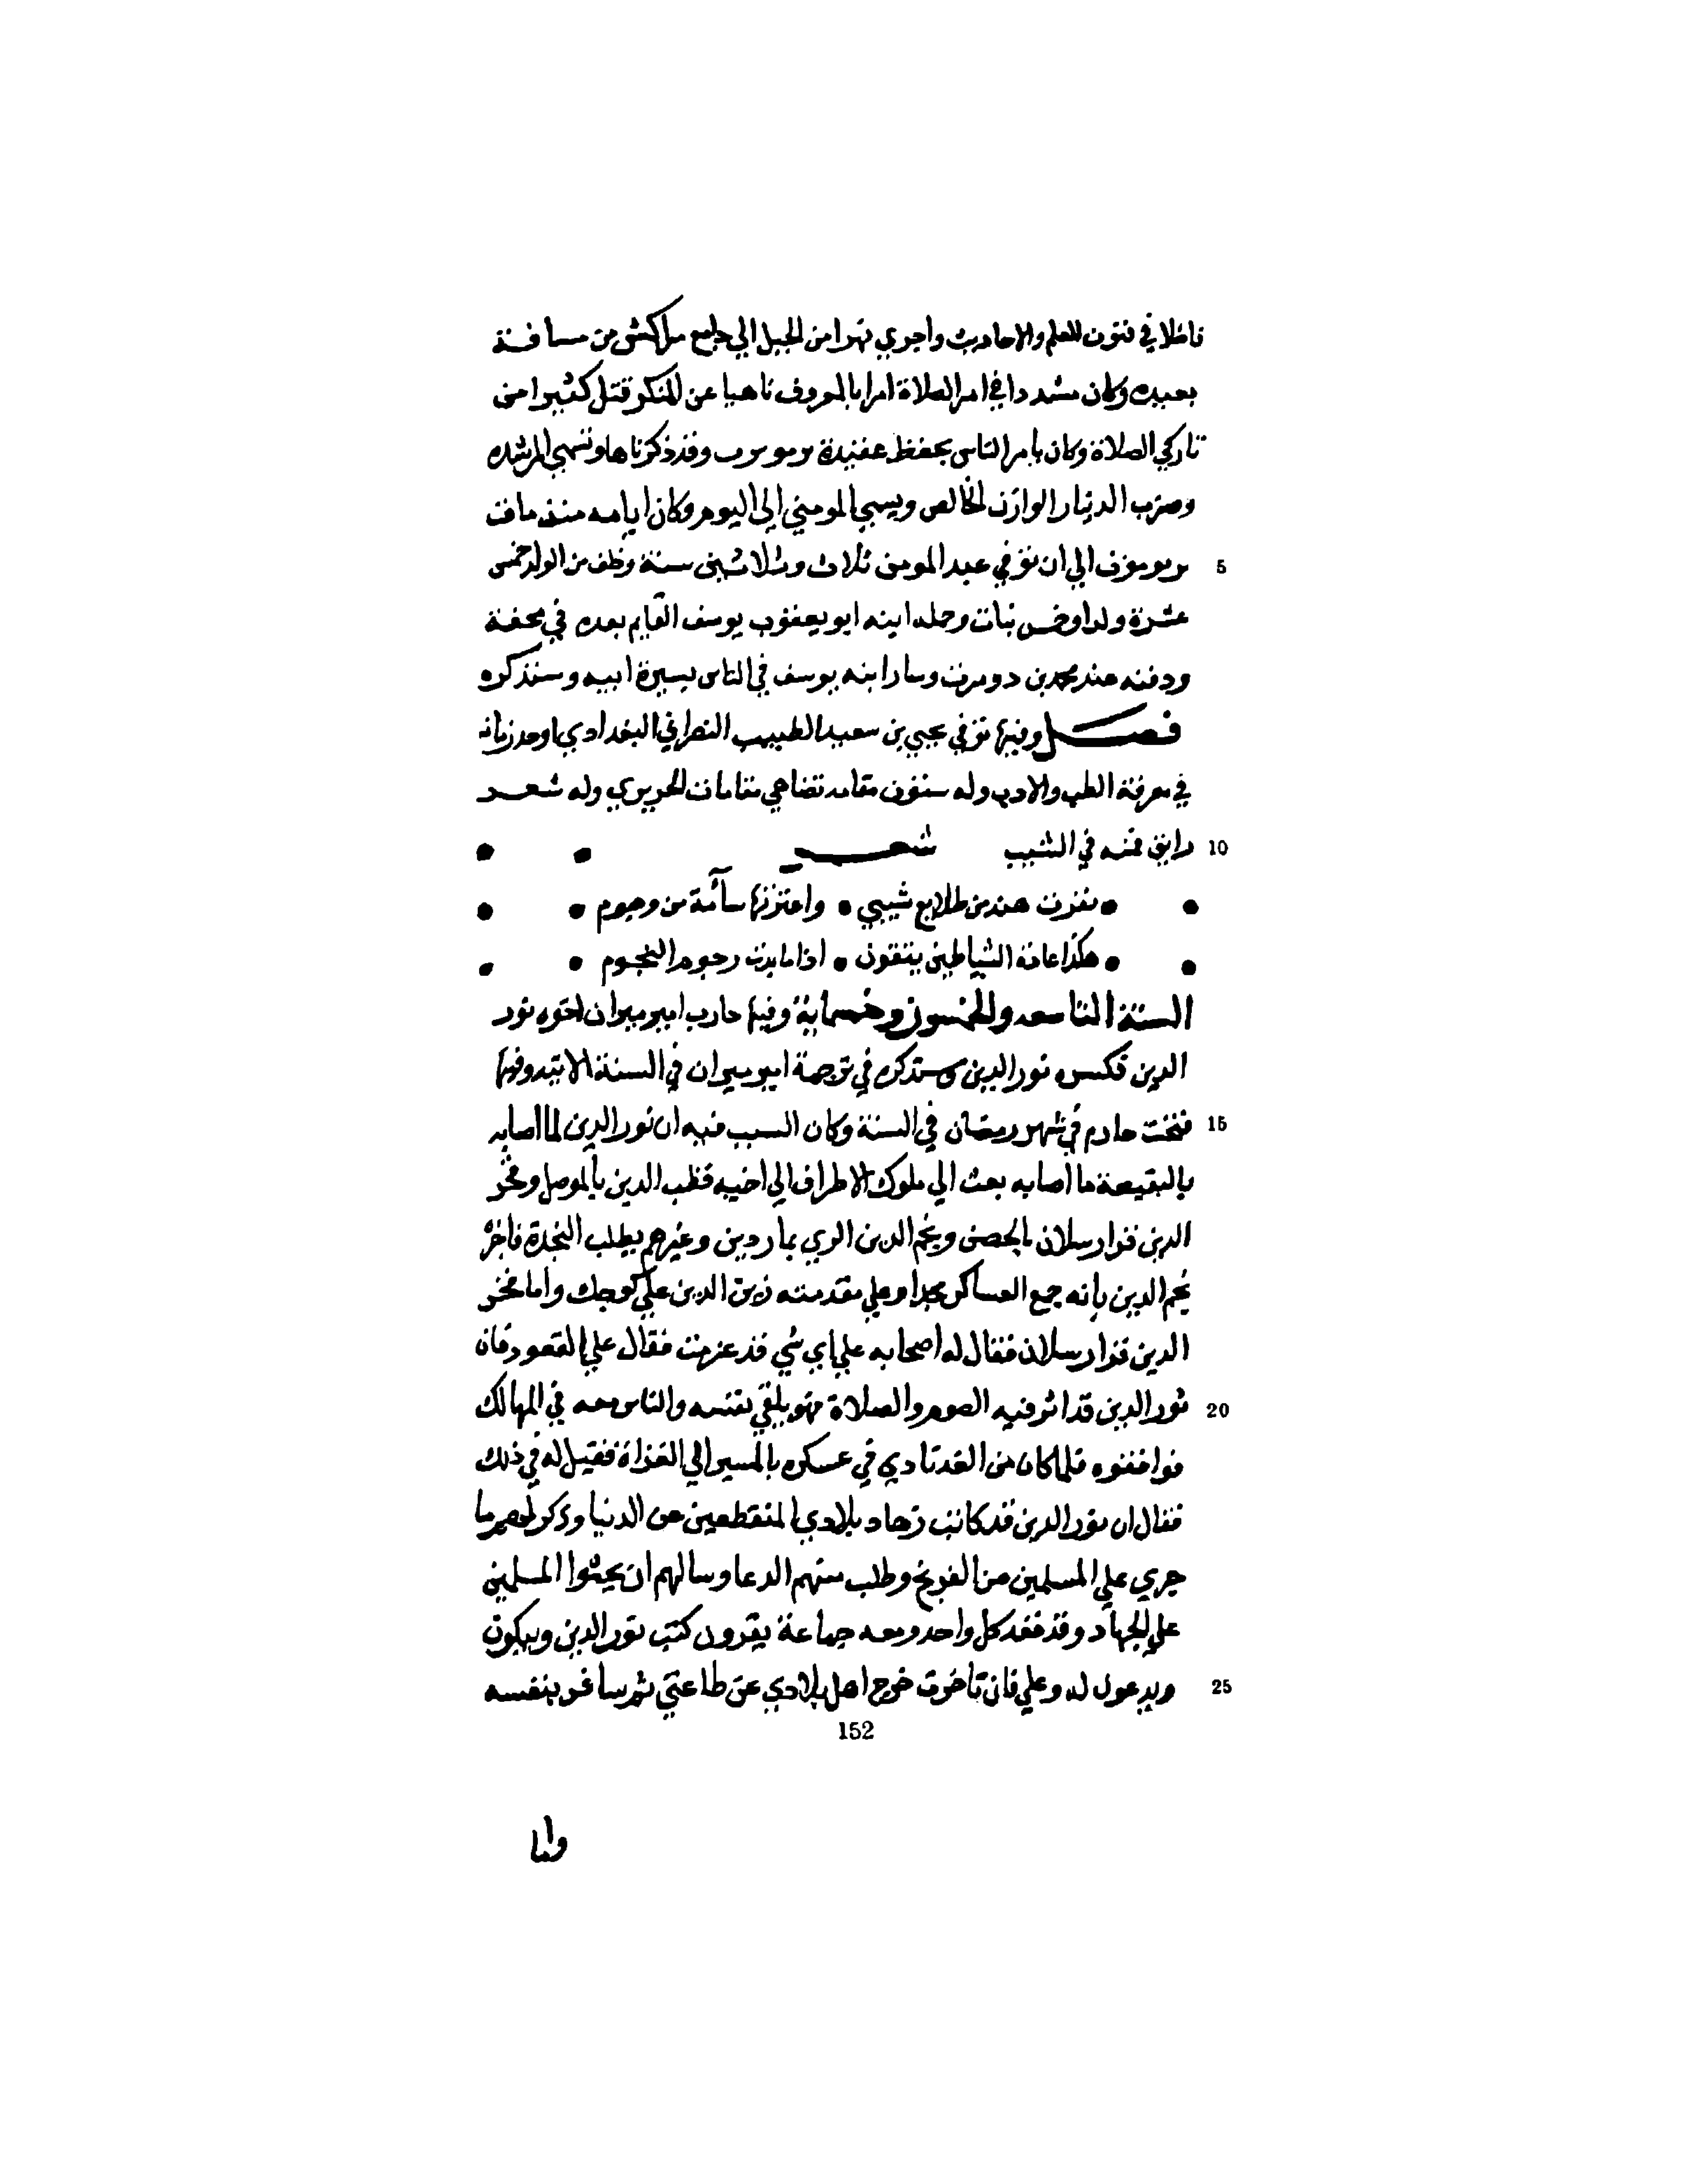 فاضلا في فنون العلم والاحاديث واجري نهرا من الجبل الي جامع مراكش من مسافة
بعيده وكان مشددا في امر الصلاة امرا بالمعروف ناهيا عن المنكر قتل كثيرا من
تاركي الصلاة وكان يامر الناس بحفظ عقيدة وقد ذكرناها وتسمي المرشده
وضرب الدينار الوازن الخالص ويسمي المومني الي اليوم وكان ايامه منذ مات
الي ان توفي عبد المومن ثلاث وثلاثين سنة وخلف من الولد خمس
عشرة ولدا وخمس بنات وحمله ابنه ابو يعقوب يوسف القايم بعده في محفة
ودفنه عند محمد بن دومرت وسار ابنه يوسف في الناس بسيرة ابيه وسنذكره
فصل وفيها توفي يحيي بن سعيد الطبيب النصراني البغدادي اوحد زمانه
في معرفة الطب والادب وله ستون مقامه تضاهي مقامات الحريري وله شعر
رايق فمنه في الشيب شعر
نفرت هند من طلايع شيبي • واعترتها سآمة من وجوم
هكذا عادة الشياطين ينفرون • اذا ما بدت رجوم النجوم
السنة التاسعه والخمسون وخمسماية وفيها حارب امير ميران اخوه نور
الدين فكسره نور الدين وسنذكره في ترجمة امير ميران في السنة الاتيه وفيها
فتحت حارم في شهر رمضان في السنة وكان السبب فيه ان نور الدين لما اصابه
بالبقيعة ما اصابه بعث الي ملوك الاطراف الي اخيه قطب الدين بالموصل وفخر
الدين قرا رسلان بالحصن ونجم الدين الري بماردين وغيرهم يطلب النجدة فاخبر
نجم الدين بانه جمع العساكر مجدا وعلي مقدمته زين الدين علي كوجك واما فخر
الدين قرا رسلان فقال له اصحابه علي اي شي قد عزمت فقال علي القعود فان
نور الدين قد اثر فيه الصوم والصلاة فهو يلقي بنفسه والناس معه في المهالك
فوافقوه فلما كان من الغد نادي في عسكره بالمسير الي الغزاة فقيل له في ذلك
فقال ان نور الدين قد كاتب زهاد بلادي المنقطعين عن الدنيا وذكر لهم ما
جري علي المسلمين من الفرنج وطلب منهم الدعا وسالهم ان يحثوا المسلمين
علي الجهاد وقد قعد كل واحد ومعه جماعة يقرون كتب نور الدين ويبكون
ويدعون له وعلي فان تاخرت خرج اهل بلادي عن طاعتي ثم سافر بنفسه
5
10
15
20
25
152
واما